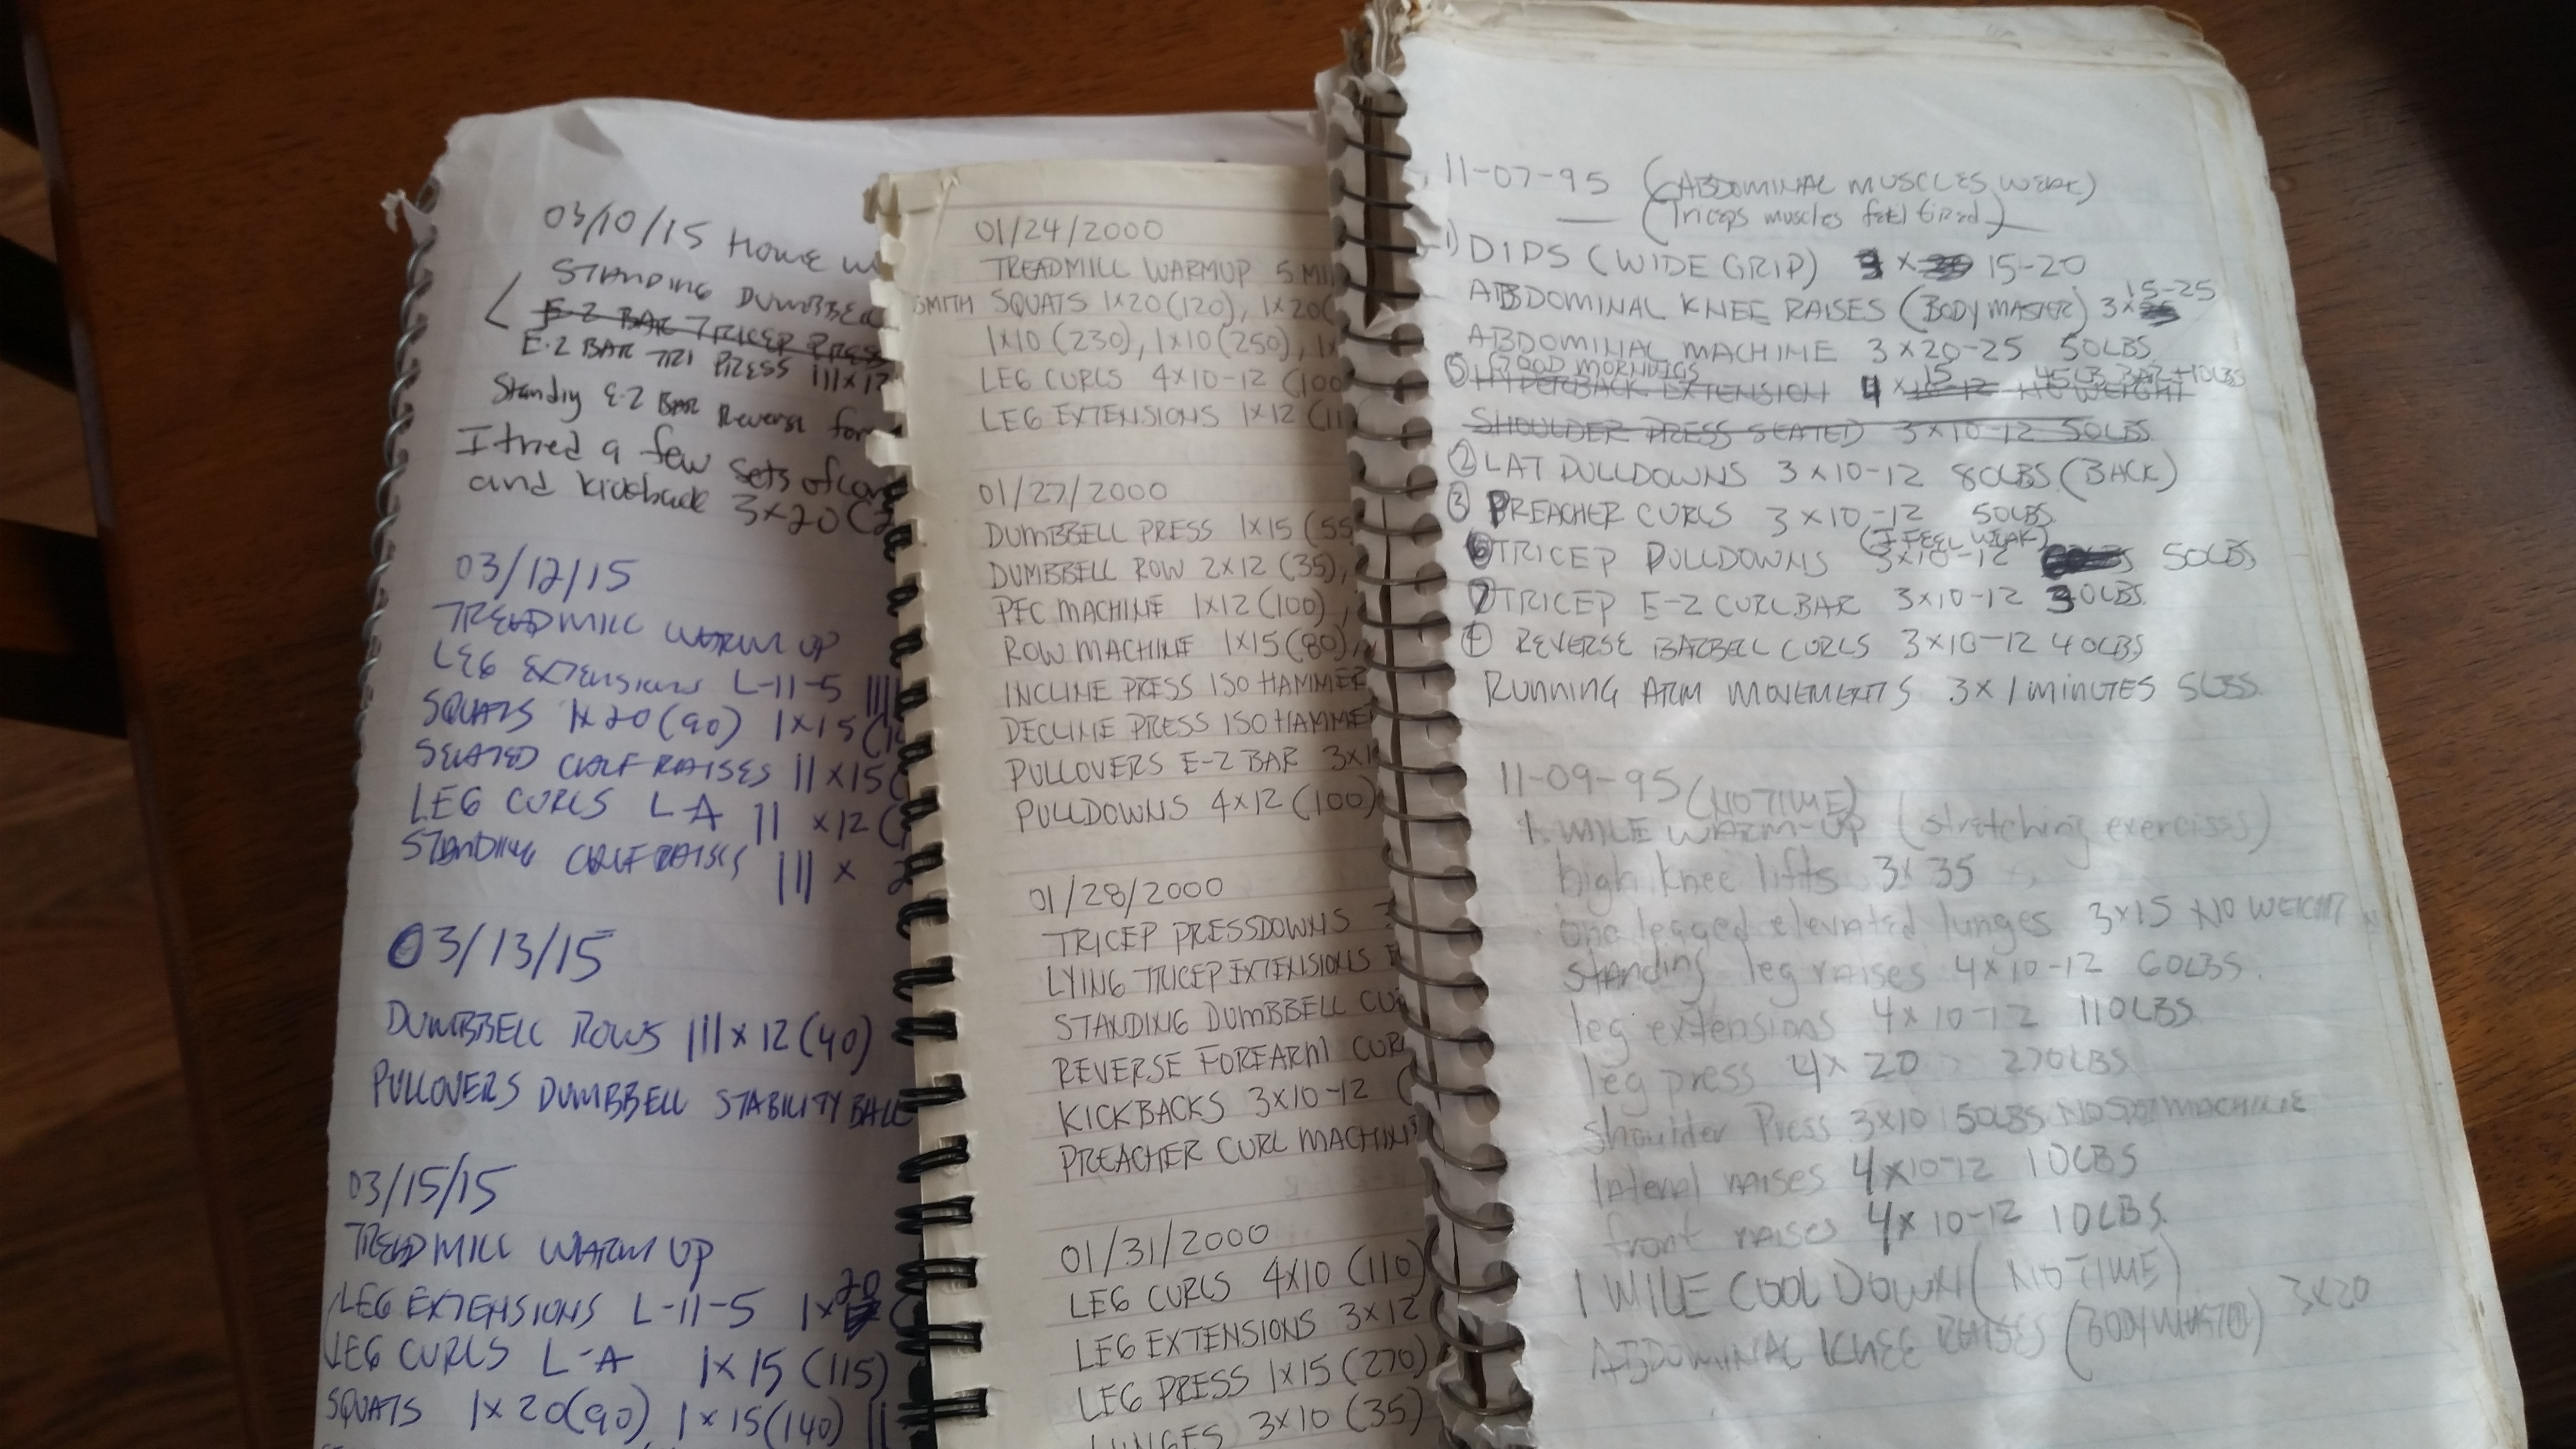 03/10/15 HOME
STANDING DUMBBELL
E-Z BAR TRICEP PRESS
E-Z BAR TRI PRESS III X 12
Standing E-Z BAR Reverse
I tried a few sets of
and kickback 3X20
03/12/15
TREADMILL WARM UP
LEG EXTENSIONS L-11-5 IIII
SQUATS 1X20(90) 1X15
SEATED CALF RAISES II X15
LEG CURLS L-A II X12
STANDING CALF RAISES III X
03/13/15
DUMBBELL ROWS III X 12 (40)
PULLOVERS DUMBBELL STABILITY BALL
03/15/15
TREADMILL WARM UP
LEG EXTENSIONS L-11-5 1X 20
LEG CURLS L-A 1X15 (115)
SQUATS 1X20(90) 1X15(140) II
01/24/2000
TREADMILL WARMUP 5
SMITH SQUATS 1X20(120), 1X20(
1X10 (230), 1X10(250),
LEG CURLS 4X10-12 (100
LEG EXTENSIONS 1X12 (11
01/27/2000
DUMBBELL PRESS 1X15 (55
DUMBBELL ROW 2X12 (35),
PEC MACHINE 1X12(100),
ROW MACHINE 1X15(80),
INCLINE PRESS ISO HAMMER
DECLINE PRESS ISO HAMMER
PULLOVERS E-Z BAR 3X1
PULLDOWNS 4X12 (100)
01/28/2000
TRICEP PRESSDOWNS
LYING TRICEP EXTENSIONS
STANDING DUMBBELL CU
REVERSE FOREARM CUR
KICKBACKS 3X10-12 (
PREACHER CURL MACHINE
01/31/2000
LEG CURLS 4X10 (110)
LEG EXTENSIONS 3X12
LEG PRESS 1X15 (270)
LUNGES 3X10 (35)
11-07-95 (ABDOMINAL MUSCLES WEAK)
(Triceps muscles feel tired)
1) DIPS (WIDE GRIP) 3 X 15-20
ABDOMINAL KNEE RAISES (BODY MASTER) 3X 15-25
ABDOMINAL MACHINE 3X20-25 50LBS
GOOD MORNINGS 15 45LB BAR +10LBS
5 HYPERBACK EXTENSION 4 X 10-12 NO WEIGHT
SHOULDER PRESS SEATED 3X10-12 50LBS
2 LAT PULLDOWNS 3X10-12 80LBS (BACK)
3 PREACHER CURLS 3X10-12 50LBS
(I FEEL WEAK)
6 TRICEP PULLDOWNS 3X10-12 50LBS
7 TRICEP E-Z CURLBAR 3X10-12 30LBS.
4 REVERSE BARBELL CURLS 3X10-12 40LBS
RUNNING ARM MOVEMENTS 3X1 MINUTES 5LBS
11-09-95 (NO TIME)
1. MILE WARM-UP (stretching exercises)
high knee lifts 3X35
one legged elevated lunges 3X15 NO WEIGHT
standing leg raises 4X10-12 60LBS.
leg extensions 4X10-12 110LBS
leg press 4X20 270LBS
shoulder Press 3X10 50LBS MACHINE
lateral raises 4X10-12 10LBS
front raises 4X10-12 10LBS.
1 MILE COOL DOWN (NO TIME)
ABDOMINAL KNEE RAISES (BODYMASTER) 3X20